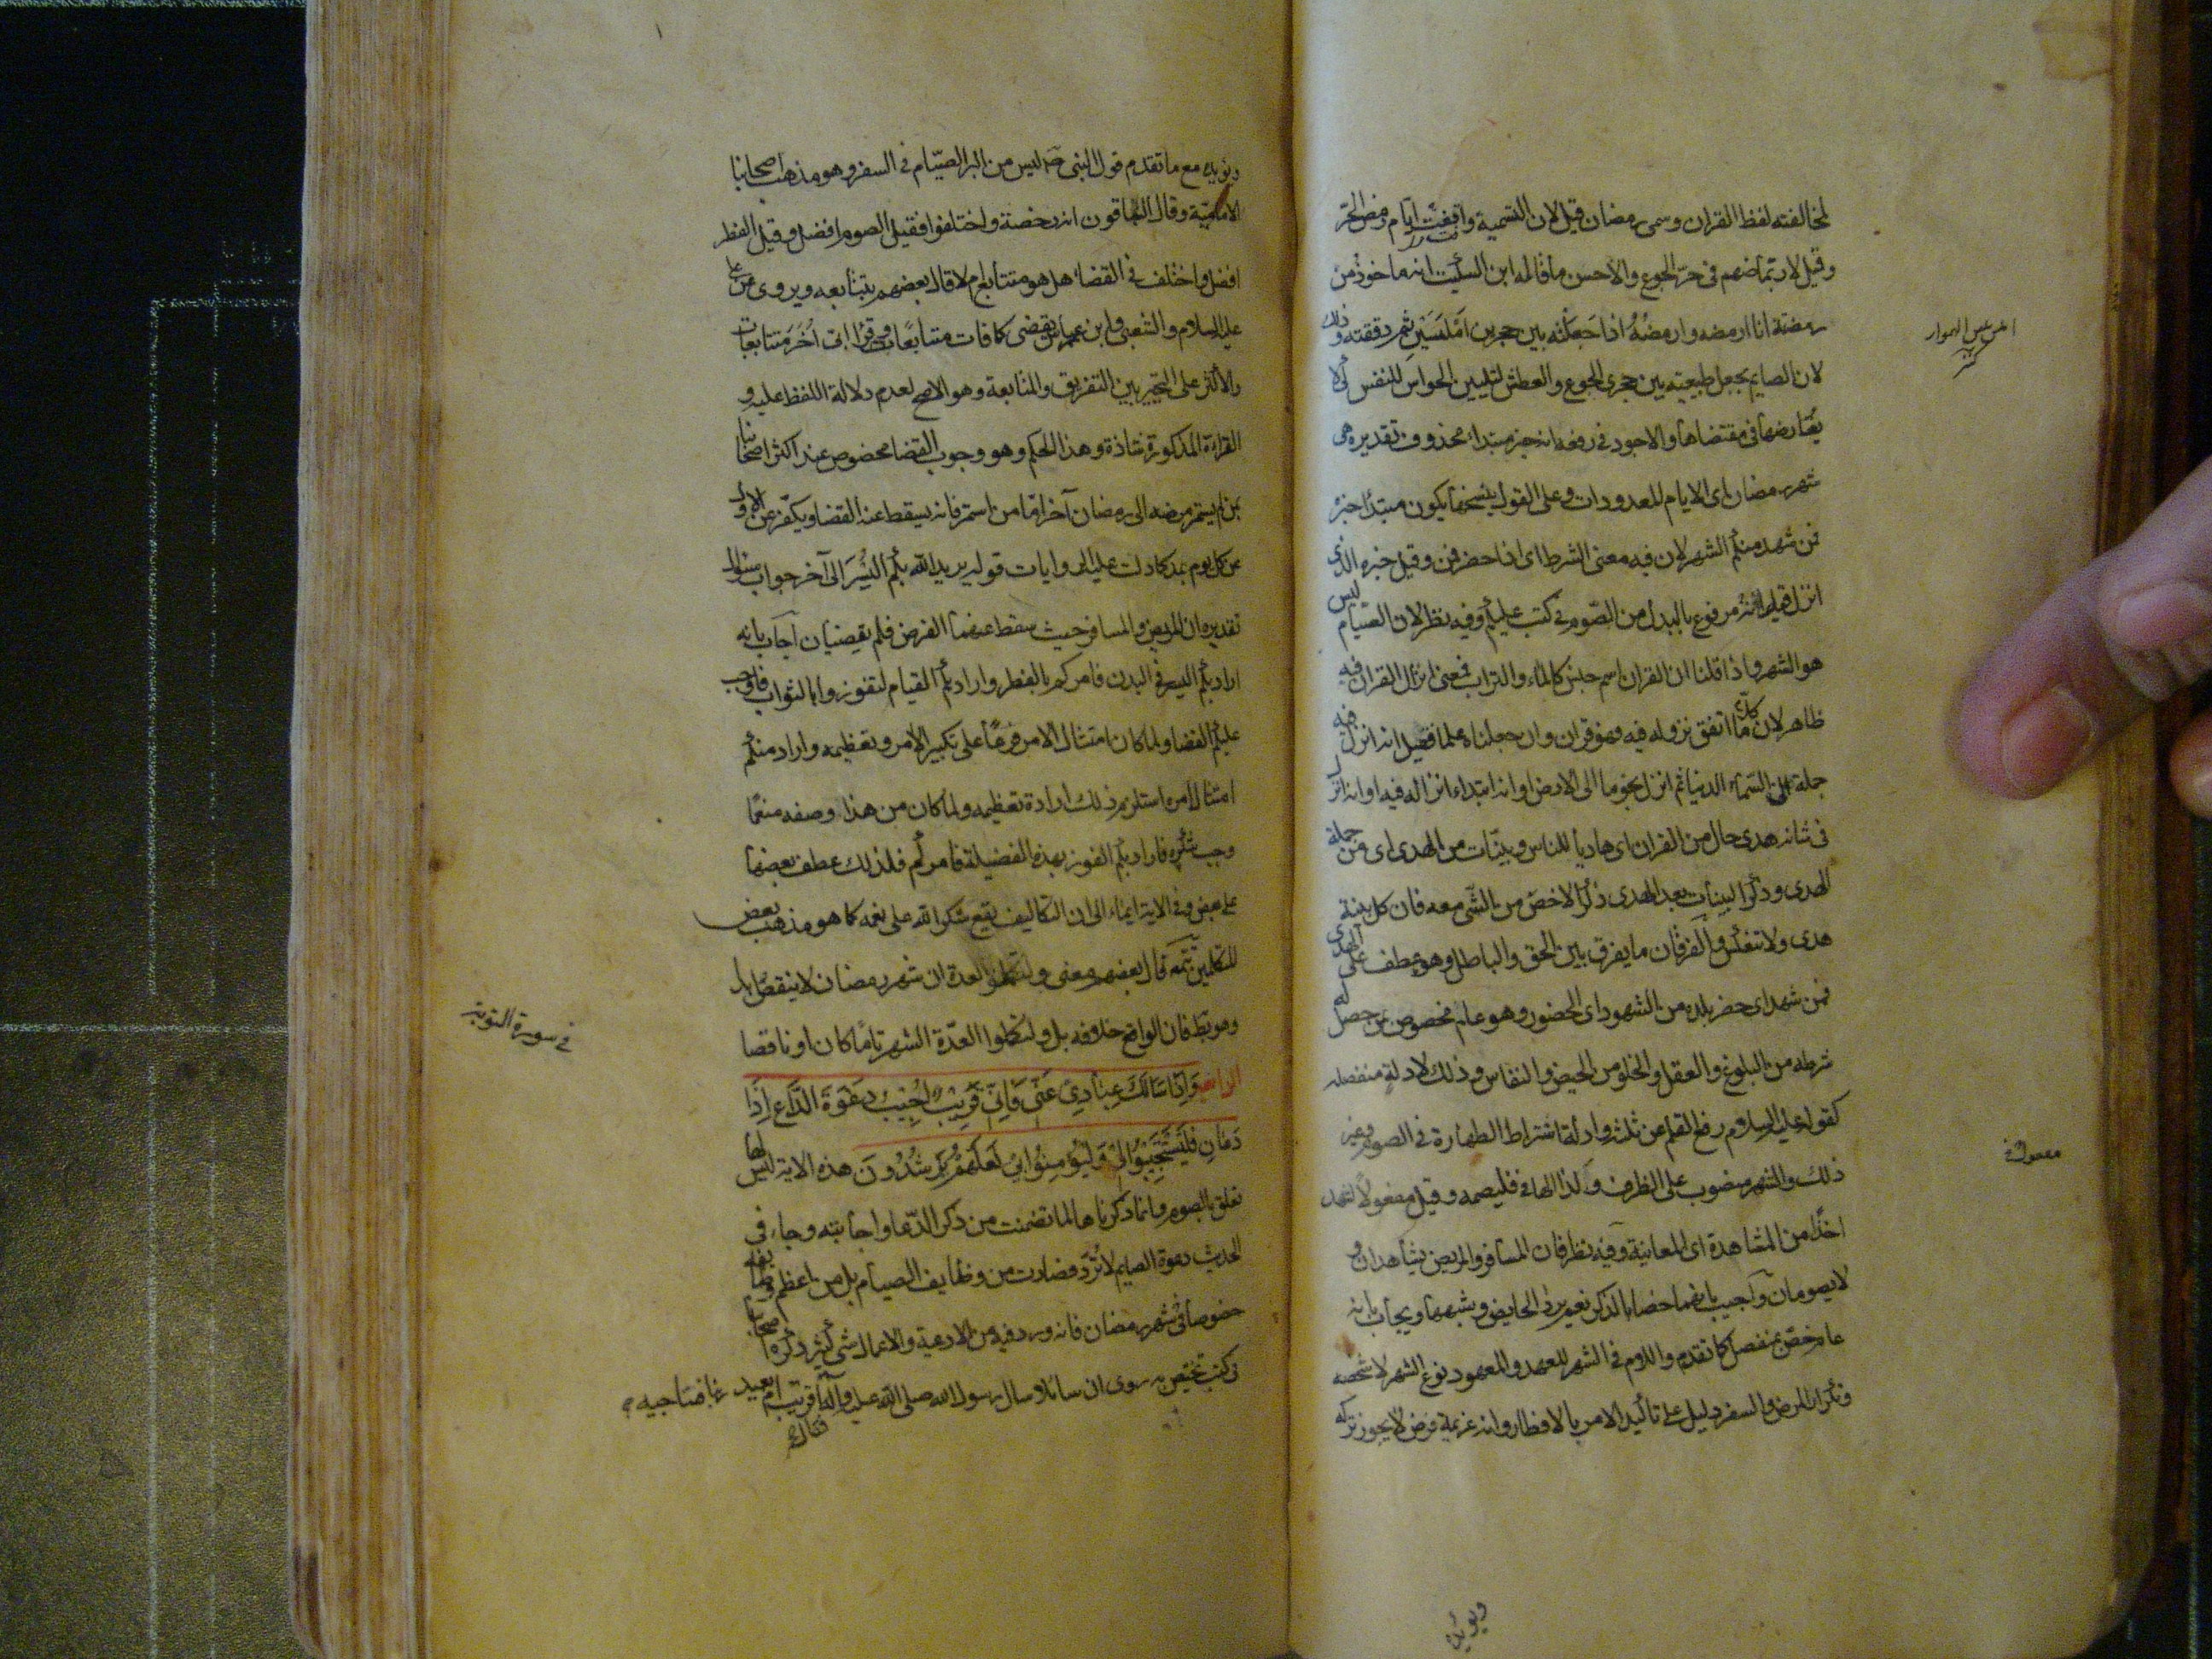 لمخالفته لفظ القران وسمى رمضان قيل لان التسمية وافقت ايام رمض الحرّ
وقيل لارتماضهم فى حرّ الجوع والاحسن ما قاله ابن السكيت انه ماخوذ من
رمضته انا ارمضه وارمضُهُ اذا جَعلته بين حجرين امْلَسَيْنِ ثمر دققته وذلك
لان الصايم يجعل طبيعته بين حجرى الجوع والعطش لتليين الحواس للنفس لئلا
يعارضها فى مقتضاها والاجود فى رفعه انه خبر مبتداء محذوف تقديره هى
شهر رمضان اى الايام المعدودات وعلى القول بنسخها يكون مبتدأ خبره
فمن شهد منكم الشهر لان فيه معنى الشرط اى اذا حضر فمن وقيل خبره الذى
انزل قيل انه مرفوع بالبدل من الصّوم فى كتب عليكم وفيه نظر لان الصّيام ليس
هو الشهر واذا قلنا ان القران اسم جنس كالماء والتراب فمعنى انزال القران فيه
ظاهر لان كلّ ما اتفق نزوله فيه فهو قران وان جعلناه علما فقيل انه انزل فيه
جملة الى السّماء الدنيا ثم انزل نجوما الى الارض او انه ابتداء انزاله فيه او انه انزل
فى شانه هدى حال من القران اى هاديا للناس وبيّنات من الهدى اى من جملة
الهدى وذكر البينات بعد الهدى ذكر الاخصّ من الشّى معه فان كل بينة
هدى ولا تنعكس والفرقان ما يفرق بين الحق والباطل وهو عطف على الهدى
فمن شهد اى حضر بلده من الشهود اى الحضور وهو عام مخصوص بمن حصل له
شرطه من البلوغ والعقل والخلو من الحيض والنفاس وذلك لادلة منفصله
كقوله عليه السلام رفع القلم عن ثلث وادلة اشتراط الطهارة فى الصوم وغير
ذلك والشهر منصوب على الظرف وكذا الهاء فى فليصمه وقيل مفعول لشهد
اخذًا من المشاهدة اى المعاينة وفيه نظر فان المسافر والمريض يشاهدان و
لا يصومان واجيب بانهما خصا بالذكر نعم يرد الحايض وشبهها ويجاب بانه
عام خصّ بمنفصل كما تقدم واللام فى الشهر للعهد والمعهود نوع الشهر لا شخصه
وتكرار المرض والسفر دليل على تأكيد الامر بالافطار وانه عزيمة فرض لا يجوز تركه
ويؤيده
ويؤيده مع ما تقدم قول النبى صه ليس من البر الصّيام فى السفر وهو مذهب اصحابنا
الاماميّة وقال الباقون انه رخصة واختلفوا فقيل الصوم افضل وقيل الفطر
افضل واختلف فى القضاء هل هو متتابع ام لا قال بعضهم بتتابعه ويروى عن على
عليه السلام والشعبى وابن عمر انه يقضى كما فات متتابعًا وفى قرأ ابى اُخَرَ متتابعات
والاكثر على التخيير بين التفريق والمتابعة وهو الاصح لعدم دلالة اللفظ عليه و
القراءة المذكورة شاذة وهذا الحكم وهو وجوب القضا مخصوص عند اكثر اصحابنا
بمن لم يستمر مرضه الى رمضان آخر امّا من استمر فانه يسقط عنه القضا ويكفّر عن الاول
عن كل يوم بمد كما دلت عليه الروايات قوله يريد الله بكم اليُسْرَ الى آخر جواب سؤال
تقديره ان المريض والمسافر حيث سقط عنهما الفرض فلم يقضيان اجاب بانه
اراد بكم اليسر فى البدن فامركم بالفطر واراد بكم القيام لتفوزوا بالثواب فاوجب
عليكم القضا ولما كان امتثال الامر فرعًا على تكبير الامر وتعظيمه واراد منكم
امتثال امره استلزم ذلك ارادة تعظيمه ولما كان من هذا وصفه منعمًا
وجب شكره فاراد بكم الفوز بهذه الفضيلة فامركم فلذلك عطف بعضها
على بعض وفى الاية ايماء الى ان التكاليف تقع شكرا لله على نعمه كما هو مذهب بعض
المتكلمين تتمه قال بعضهم معنى ولتكملوا العدة ان شهر رمضان لا ينقص ابدا
وهو بط فان الواقع خلافه بل ولتكملوا العدّة الشهر تامًا كان او ناقصا
فى سورة التوبة
الرابعة وَاِذَا سَاَلَكَ عِبَادِىْ عَنّىْ فَاِنِّى قَرِيْبٌ اُجِيْبُ دَعْوَةَ الدَّاعِ اِذَا
دَعَانِ فَلْيَسْتَجِيْبُوْا لِىْ وَلْيُؤْمِنُوْا بِىْ لَعَلَّهُمْ يَرْشُدُوْنَ هذه الاية ليس لها
تعلق بالصوم وانما ذكرناها لما تضمنت من ذكر الدّعا واجابته وجاء فى
الحديث دعوة الصايم لا تُرَدُّ فصارت من وظايف الصيام بل من اعظم وظايفه
خصوصا فى شهر رمضان فانه ورد فيه من الادعية والاعمال شى كثير ذكره اصحابنا
فى كتب تختص به روى ان سائلا سال رسول الله صلى الله عليه وآله اقريب ام بعيد ربنا فنناجيه
معمولة